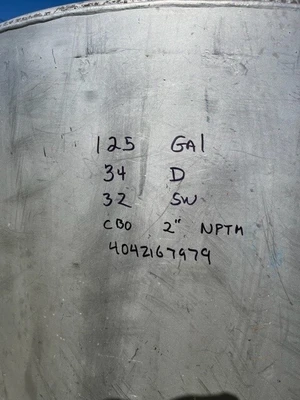 125 GAl
34 D
32 SW
CBO 2" NPTM
4042167979